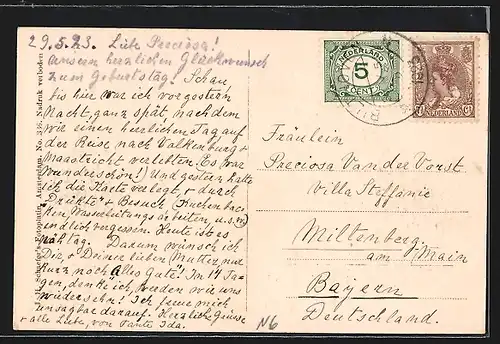 29.5.23. Liebe Preciosa!
unseren herzlichen Glückwunsch
zum Geburtstag. Schau,
bis hier war ich vorgestern
Nacht, ganz spät, nachdem
wir einen herrlichen Tag auf
der Reise nach Valkenburg &
Maastricht verlebten. Es war
Wunderschön! Und gestern hatte
ich die Karte verlegt, & durch
"Drückte" & Besuch Kuchenbac-
ken, Wasserleitungsarbeiten, u.s.w.
endlich vergessen. Heute ist es
Darum wünsch ich
Dir, & Deiner lieben Mutter, nur
kurz noch alles Gute! Im 14 Ta-
gen, denke ich, werden wir uns
wiedersehn! Ich freue mich
unsagbar darauf. Herzliche Grüsse
& alle Liebe, von Tante Ida.
Schaefer's Amsterdam. No. Nadruk verboden
NEDERLAND
5
CENT
NEDERLAND
Fräulein
Preciosa Van der Vorst
Villa Steffanie
Miltenberg
am Main
Bayern
Deutschland.
N6